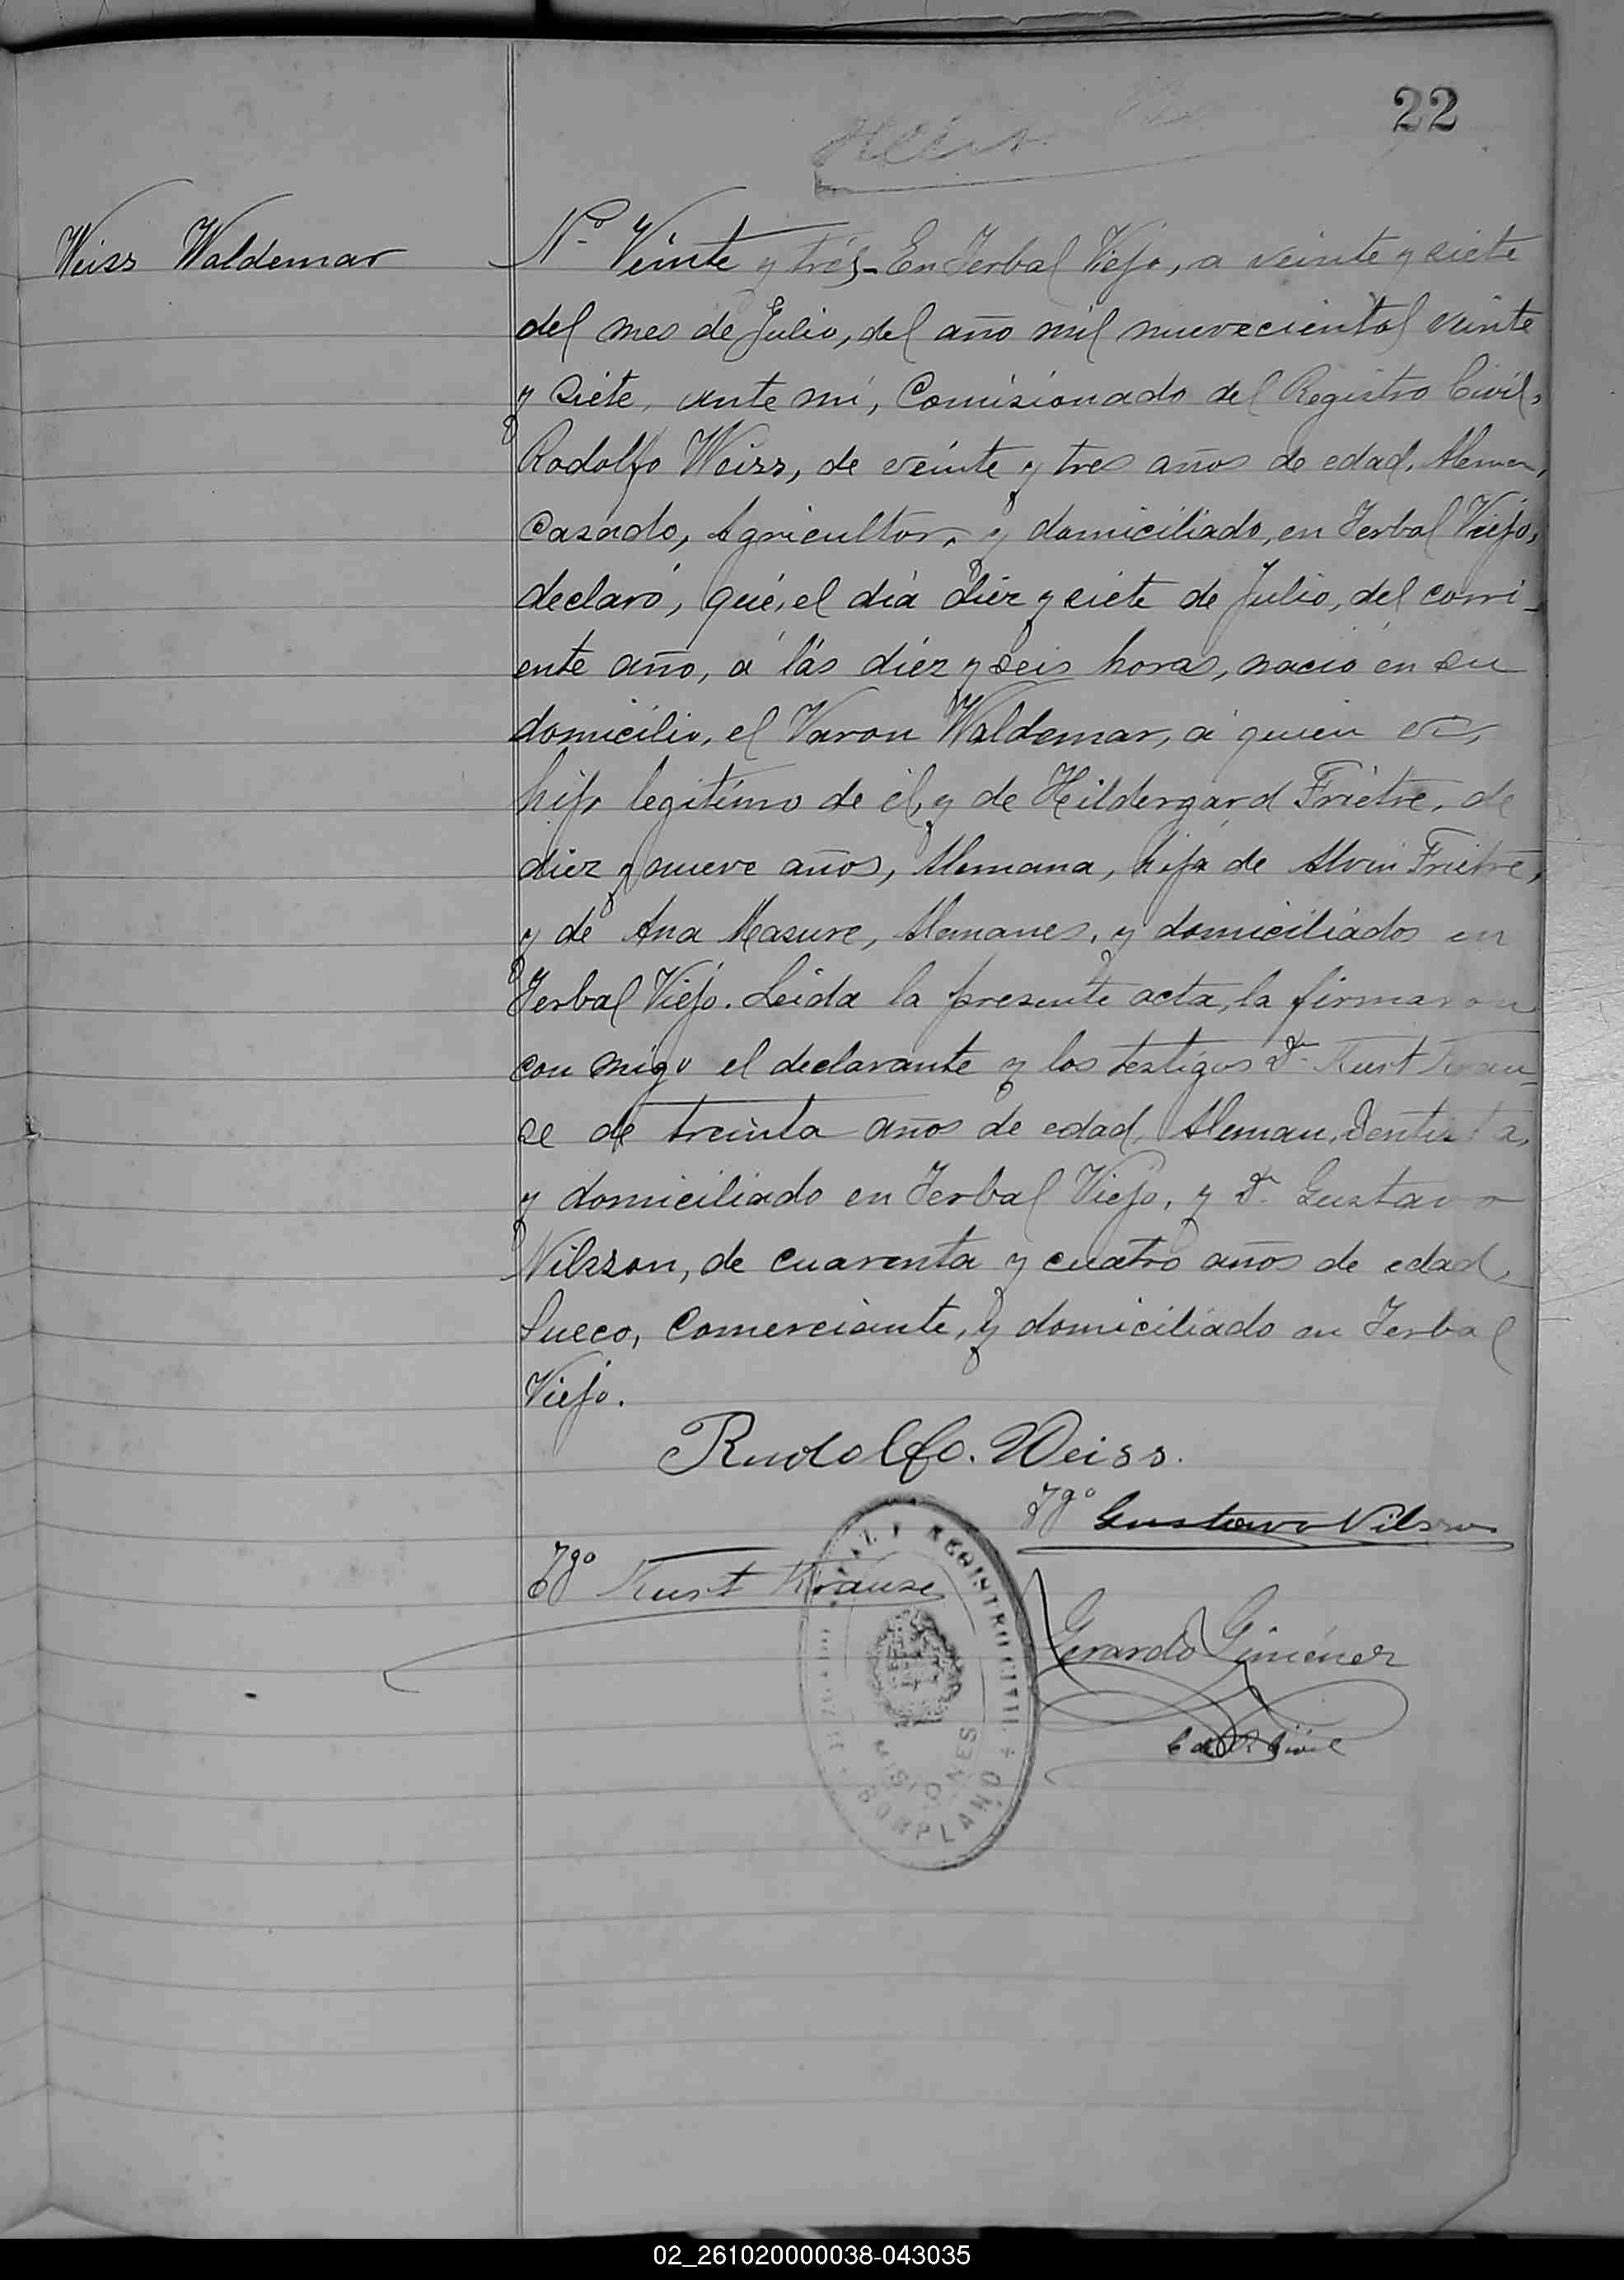 22
Weiss Waldemar
Nº Veinte y trés - En Yerbal Viejo, a veinte y siete
del mes de Julio, del año mil nuevecientos veinte
y siete, ante mí, Comisionado del Registro Civil,
Rodolfo Weiss, de veinte y tres años de edad, Aleman,
Casado, Agricultor, y domiciliado, en Yerbal Viejo,
declaró, qué, el día diez y siete de Julio, del corri-
ente año, á lás diéz y seis horas, nació en su
domicilio, el Varon Waldemar, á quien vi,
hijo legitimo de él, y de Hildergard Frietre, de
diez y nueve años, Alemana, hija de Alvin Frietre,
y de Ana Masure, Alemanes, y domiciliados en
Yerbal Viejo. Leida la presente acta, la firmaron
con migo el declarante y los testigos Dn Kurt Krau-
se de treinta años de edad, Aleman, Dentista,
y domiciliado en Yerbal Viejo, y Dn Gustavo
Nilsson, de cuarenta y cuatro años de edad,
Sueco, Comerciante, y domiciliado en Yerbal
Viejo.
Rudolfo. Weiss.
Tgo Gustavo Nilsson
Tgo Kurt Krause
Gerardo Giménez
C del R Civil
PAZ Y REGISTRO CIVIL
MISIONES
BONPLAND
02_261020000038-043035